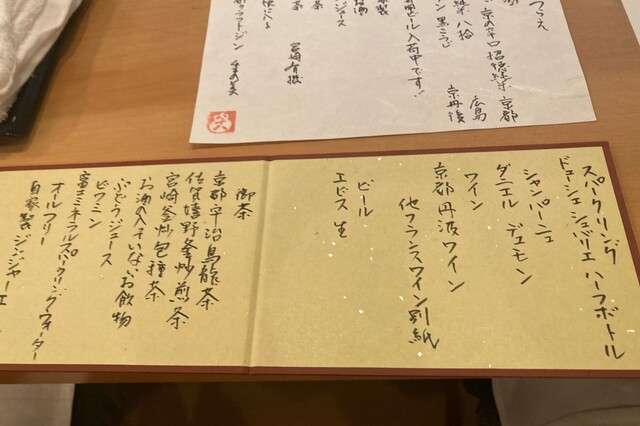 スパークリング
ドューシェ シュバリエ ハーフボトル
シャンパーニュ
ダニエル デュモン
ワイン
京都 丹波ワイン
他フランスワイン別紙
ビール
エビス 生
御茶
京都 宇治 烏龍茶
佐賀 嬉野 釜炒煎茶
宮崎 釜炒 包種茶
お酒の入っていないお飲物
ぶどうジュース
ビワミン
富士ミネラルスパークリングウォーター
オルフリー
自家製ジンジャーエ
京の辛口 招徳 純米 京都
広島
純米 八拾
京丹後
ビール入荷中です！